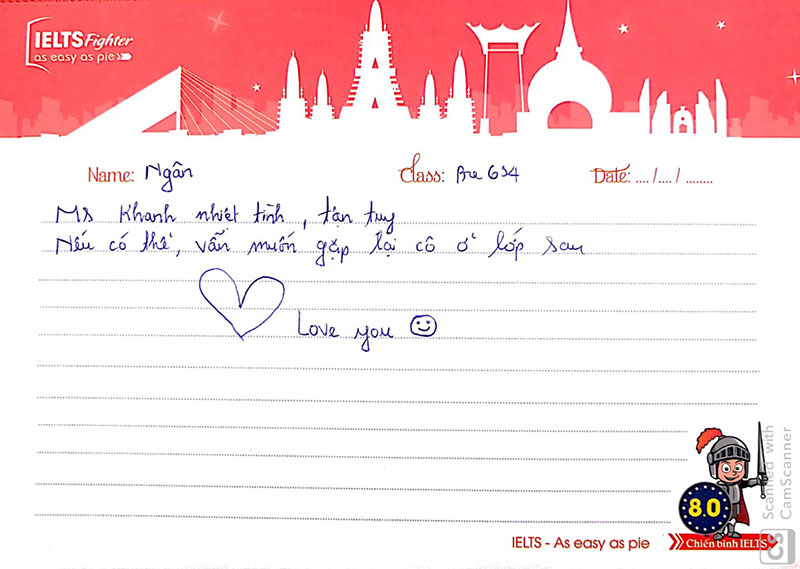 IELTS Fighter
as easy as pie
Name: Ngân Class: Pre 634 Date: ..../..../........
Ms Khanh nhiệt tình, tận tuy
Nếu có thể, vẫn muốn gặp lại cô ở lớp sau
Love you
8.0
IELTS - As easy as pie Chiến binh IELTS
Scanned with
CamScanner
CS